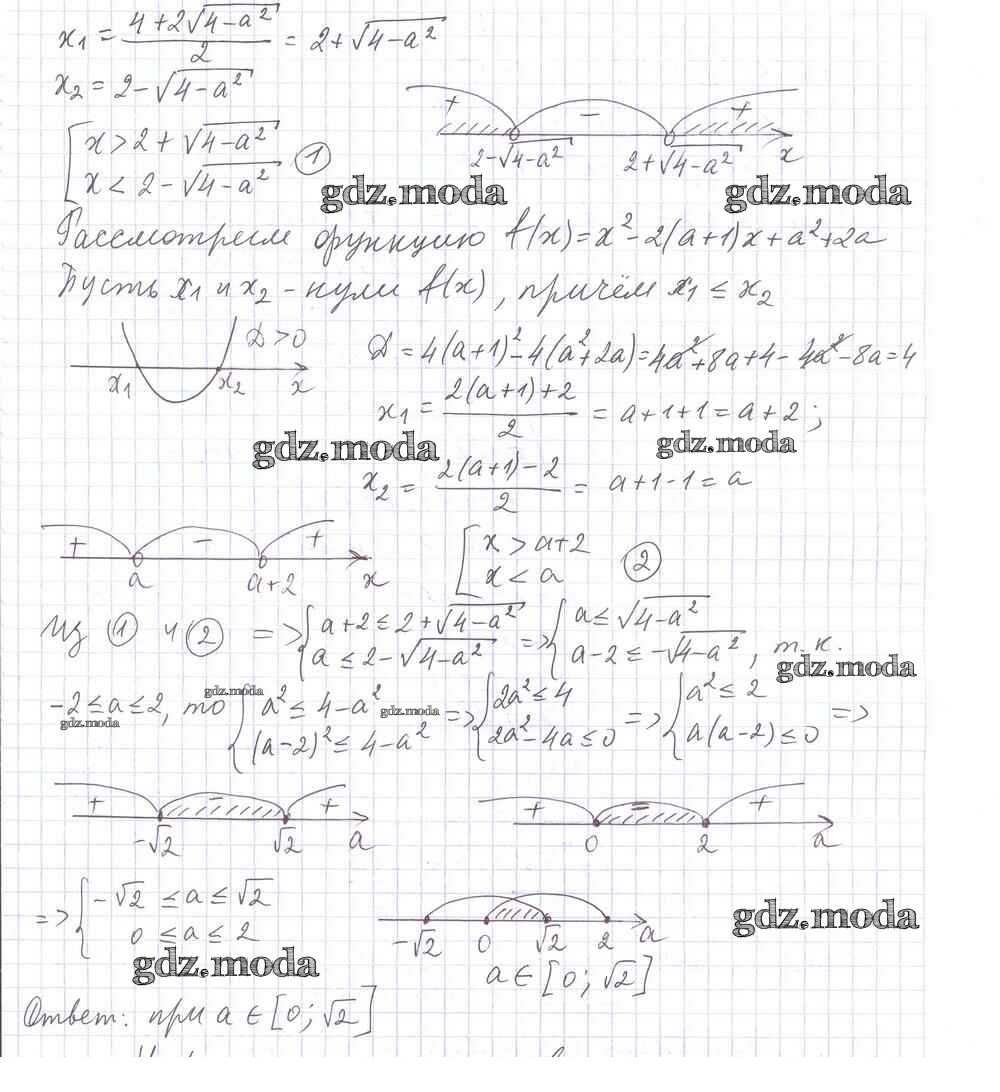 x₁ = (4+2√(4-a²))/2 = 2+√(4-a²)
x₂ = 2-√(4-a²)
+ - +
2-√(4-a²) 2+√(4-a²) x
[ x > 2+√(4-a²)
x < 2-√(4-a²) ①
gdz.moda gdz.moda
Рассмотрим функцию f(x)=x²-2(a+1)x+a²+2a
Пусть x₁ и x₂ - нули f(x), причём x₁ ≤ x₂
D>0
x₁ x₂ x
D = 4(a+1)²-4(a²+2a)=4a²+8a+4-4a²-8a=4
x₁ = (2(a+1)+2)/2 = a+1+1=a+2;
gdz.moda gdz.moda
x₂ = (2(a+1)-2)/2 = a+1-1=a
+ - +
a a+2 x
[ x > a+2
x < a ②
Из ① и ② => { a+2 ≤ 2+√(4-a²)
a ≤ 2-√(4-a²)
=> { a ≤ √(4-a²)
a-2 ≤ -√(4-a²), т.к.
gdz.moda
-2≤a≤2, то { a² ≤ 4-a²
(a-2)² ≤ 4-a²
=> { 2a² ≤ 4
2a²-4a ≤ 0
=> { a² ≤ 2
a(a-2) ≤ 0 =>
gdz.moda gdz.moda gdz.moda
+ - +
-√2 √2 a
+ - +
0 2 a
=> { -√2 ≤ a ≤ √2
0 ≤ a ≤ 2
-√2 0 √2 2 a
gdz.moda gdz.moda
a ∈ [0; √2]
Ответ: при a ∈ [0; √2]